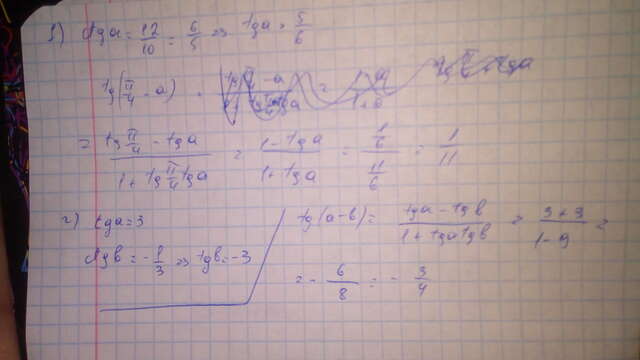 1) ctga = 12/10 = 6/5 => tga = 5/6
tg(π/4 - a) =
= (tg π/4 - tga)/(1 + tg π/4 tga) = (1 - tga)/(1 + tga) = (1/6)/(11/6) = 1/11
2) tga = 3
ctgb = -1/3 => tgb = -3
tg(a-b) = (tga - tgb)/(1 + tga tgb) = (3 + 3)/(1 - 9) =
= - 6/8 = - 3/4